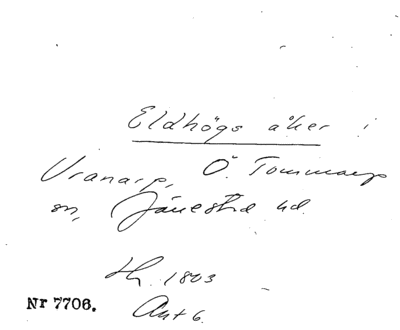 Eldhögs åker i
Vranarp, Ö. Tommarps
sn, Järrestad hd.
1803
Nr 7706. Akt 6.